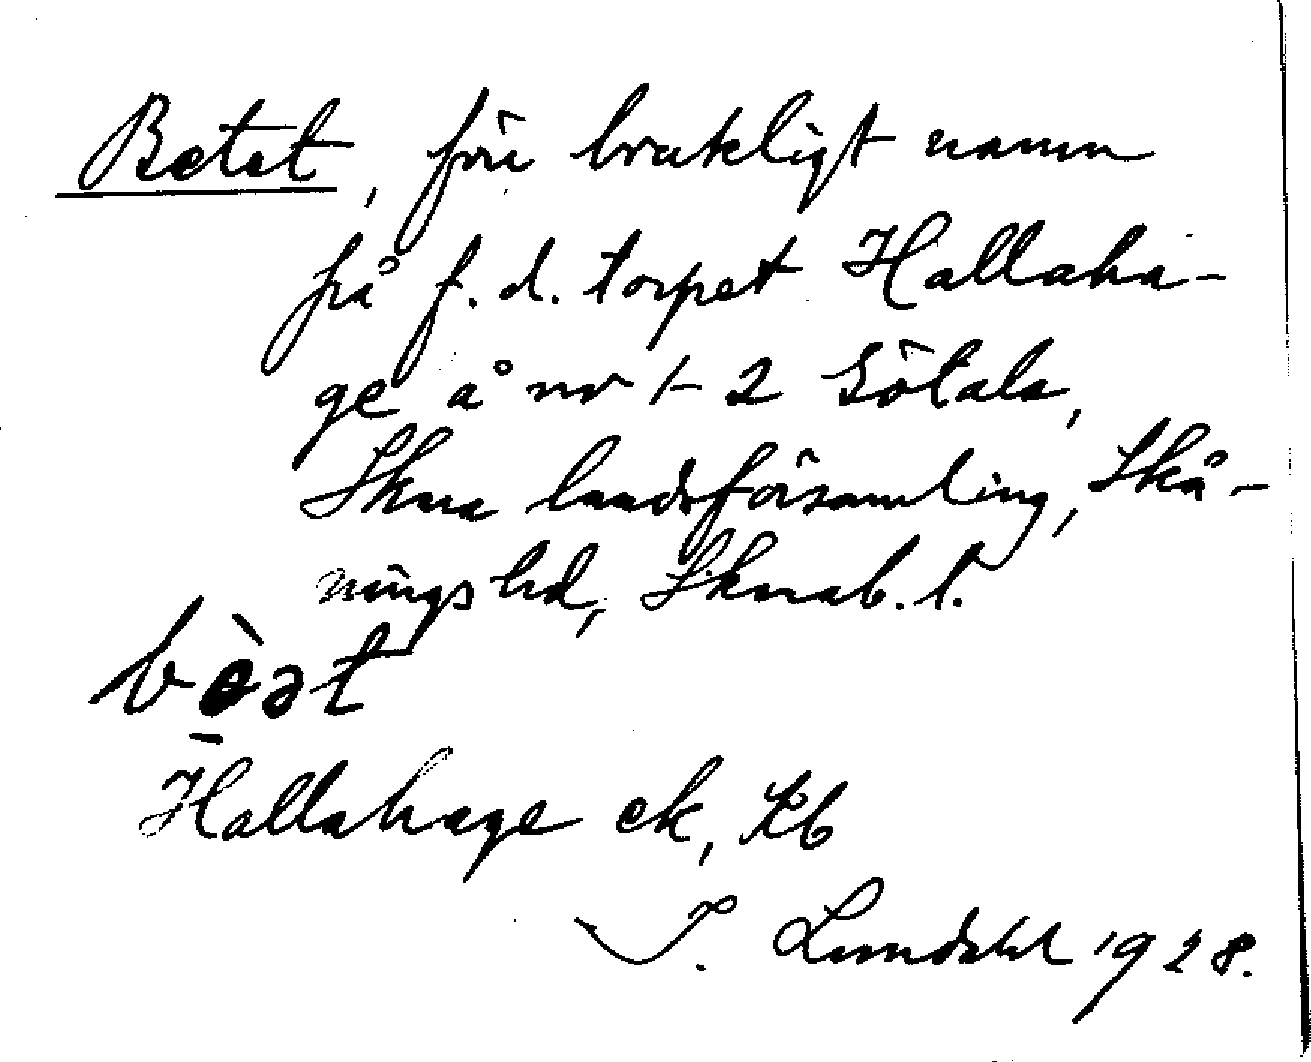 Betet, förr brukligt namn
på f.d. torpet Hallaha-
ge å nr 1-2 Götala,
Skara landsförsamling, Skå-
ningshd, Skarab. l.
bèət
Hallahage ek, Kb
I. Lundahl 1928.